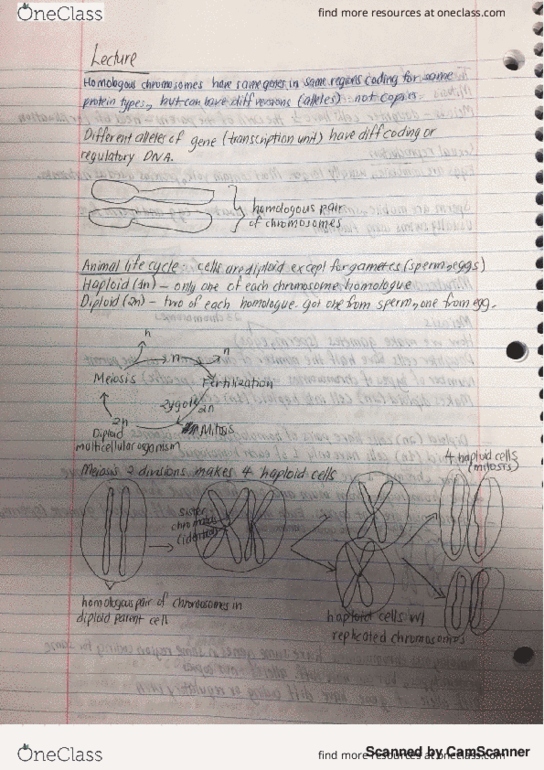 OneClass
find more resources at oneclass.com
Lecture
Homologous chromosomes have same genes in same regions coding for same
protein types, but can have diff versions (alleles) - not copies
Different alleles of gene (transcription unit) have diff coding or
regulatory DNA.
homologous pair
of chromosomes
Animal life cycle - cells are diploid except for gametes (sperm, eggs)
Haploid (1n) - only one of each chromosome homologue
Diploid (2n) - two of each homologue. got one from sperm, one from egg.
n
n
n
Meiosis
Fertilization
zygote
2n
2n
Mitosis
Diploid
multicellular organism
4 haploid cells
(mitosis)
Meiosis 2 divisions makes 4 haploid cells
sister
chromatids
(identical)
homologous pair of chromosomes in
diploid parent cell
haploid cells w/
replicated chromosomes
OneClass
find more resources at oneclass.com
Scanned by CamScanner